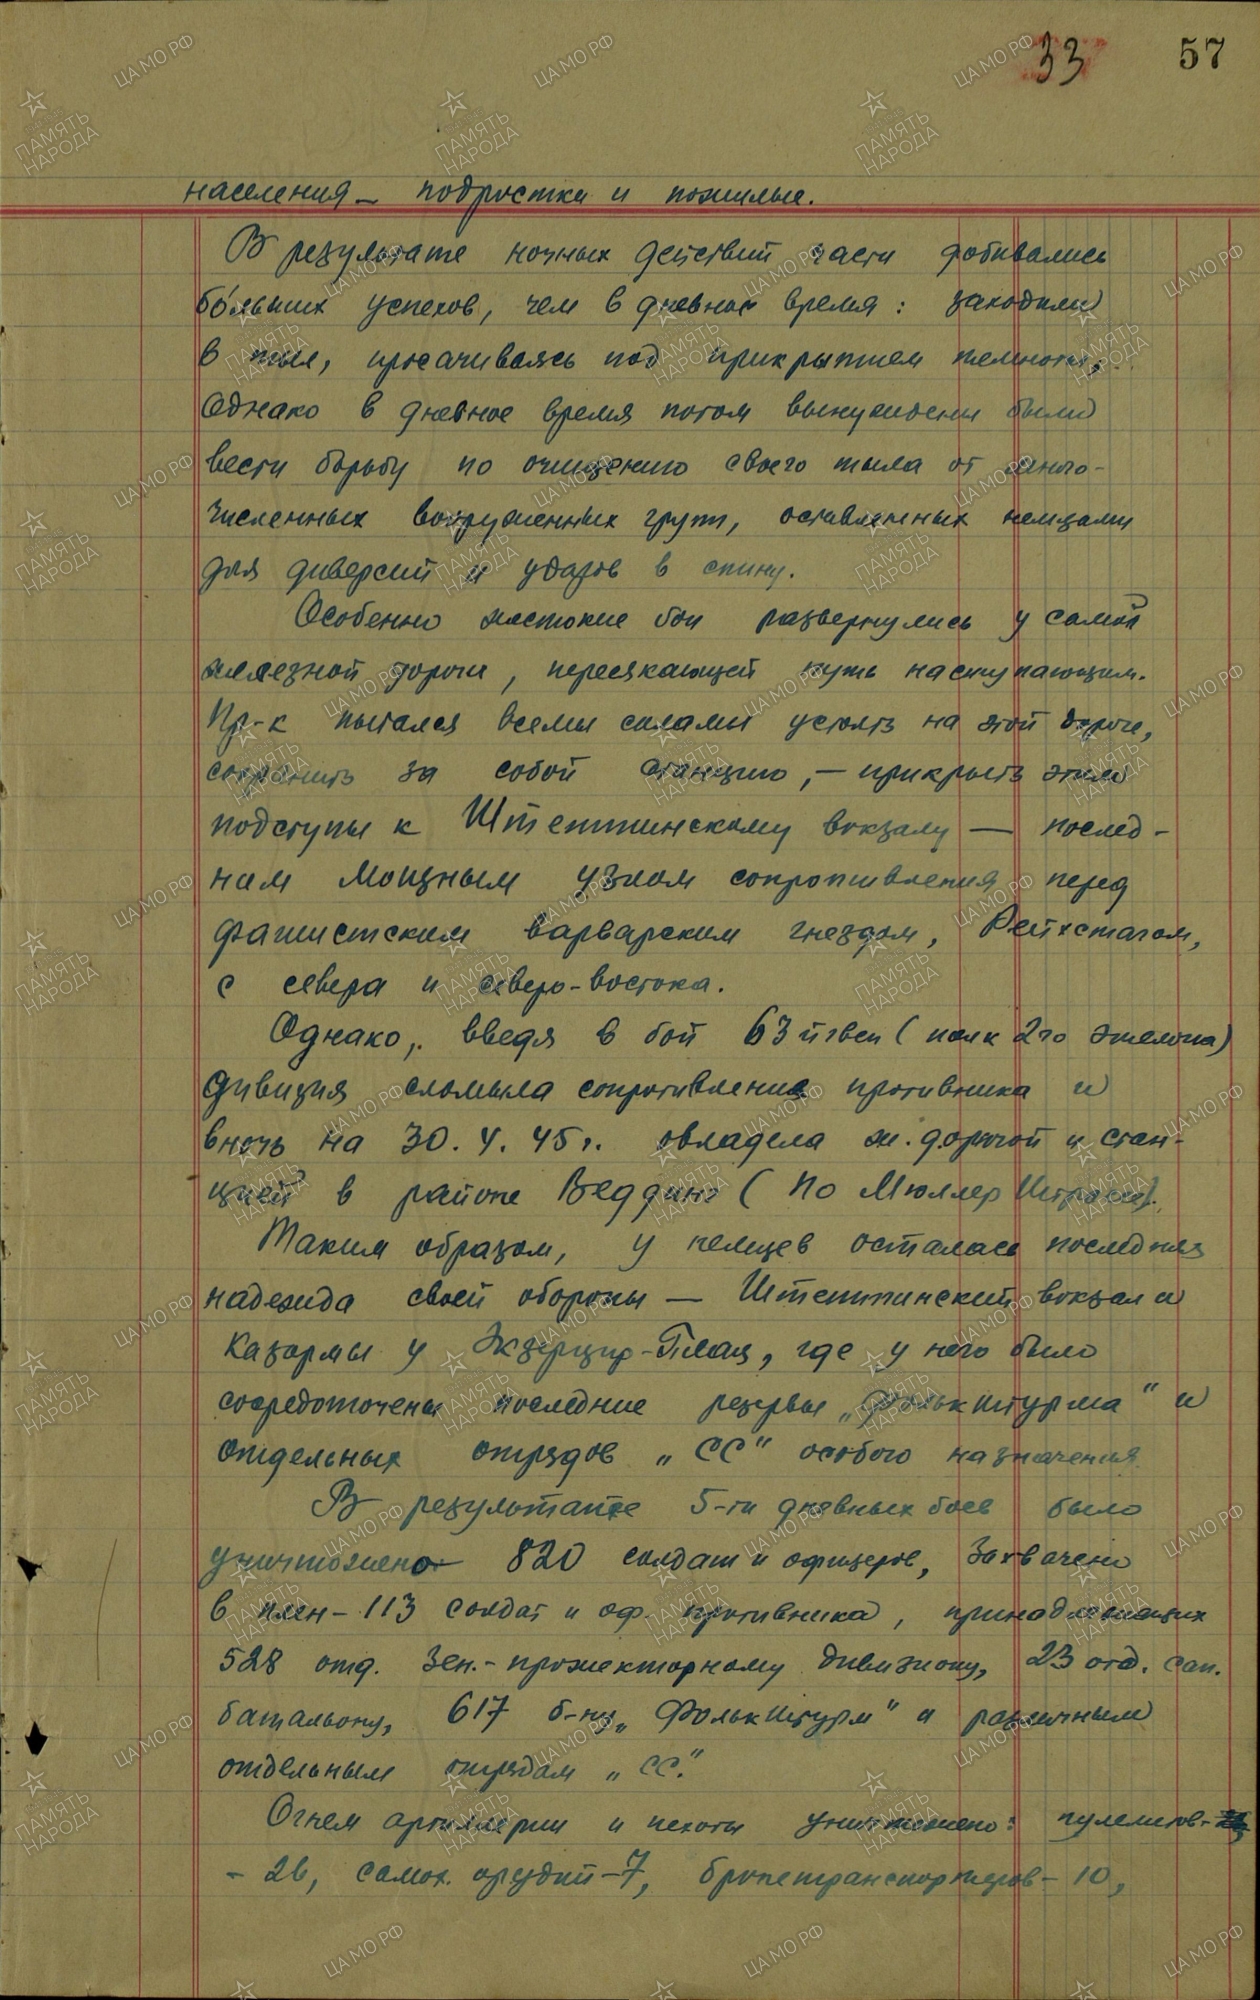 33 57
населения – подростки и пожилые.
В результате ночных действий части добивались
бо́льших успехов, чем в дневное время: заходили
в тыл, просачиваясь под прикрытием темноты,
Однако в дневное время потом вынуждены были
вести борьбу по очищению своего тыла от много-
численных вооруженных групп, оставленных немцами
для диверсий и ударов в спину.
Особенно жестокие бои развернулись у самой
железной дороги, пересекающей путь наступающим.
Пр-к пытался всеми силами устоять на этой дороге,
сохранить за собой станцию, – прикрыть этим
подступы к Штеттинскому вокзалу — послед-
ним мощным узлом сопротивления перед
фашистским варварским гнездом, Рейхстагом,
с севера и северо-востока.
Однако, введя в бой 63 (полк 2го эшелона)
дивизия сломила сопротивление противника и
вночь на 30.4.45г. овладела ж. дорогой и стан-
цией в районе Веддинг (по Мюллер Штрассе).
Таким образом, у немцев осталась последняя
надежда своей обороны — Штеттинский вокзал и
казармы у Экзерцир-Плац, где у него было
сосредоточены последние резервы „Фолькштурма" и
отдельных отрядов „СС" особого назначения
В результате 5-ти дневных боев было
уничтожено 820 солдат и офицеров, захвачено
в плен – 113 солдат и оф. противника, принадлежащих
528 отд. зен.-прожекторному дивизиону, 23 отд. сап.
батальону, 617 б-ну „Фолькштурм" и различным
отдельным отрядам „СС".
Огнем артиллерии и пехоты уничтожено: пулеметов-
– 26, самох. орудий – 7, бронетранспортеров – 10,